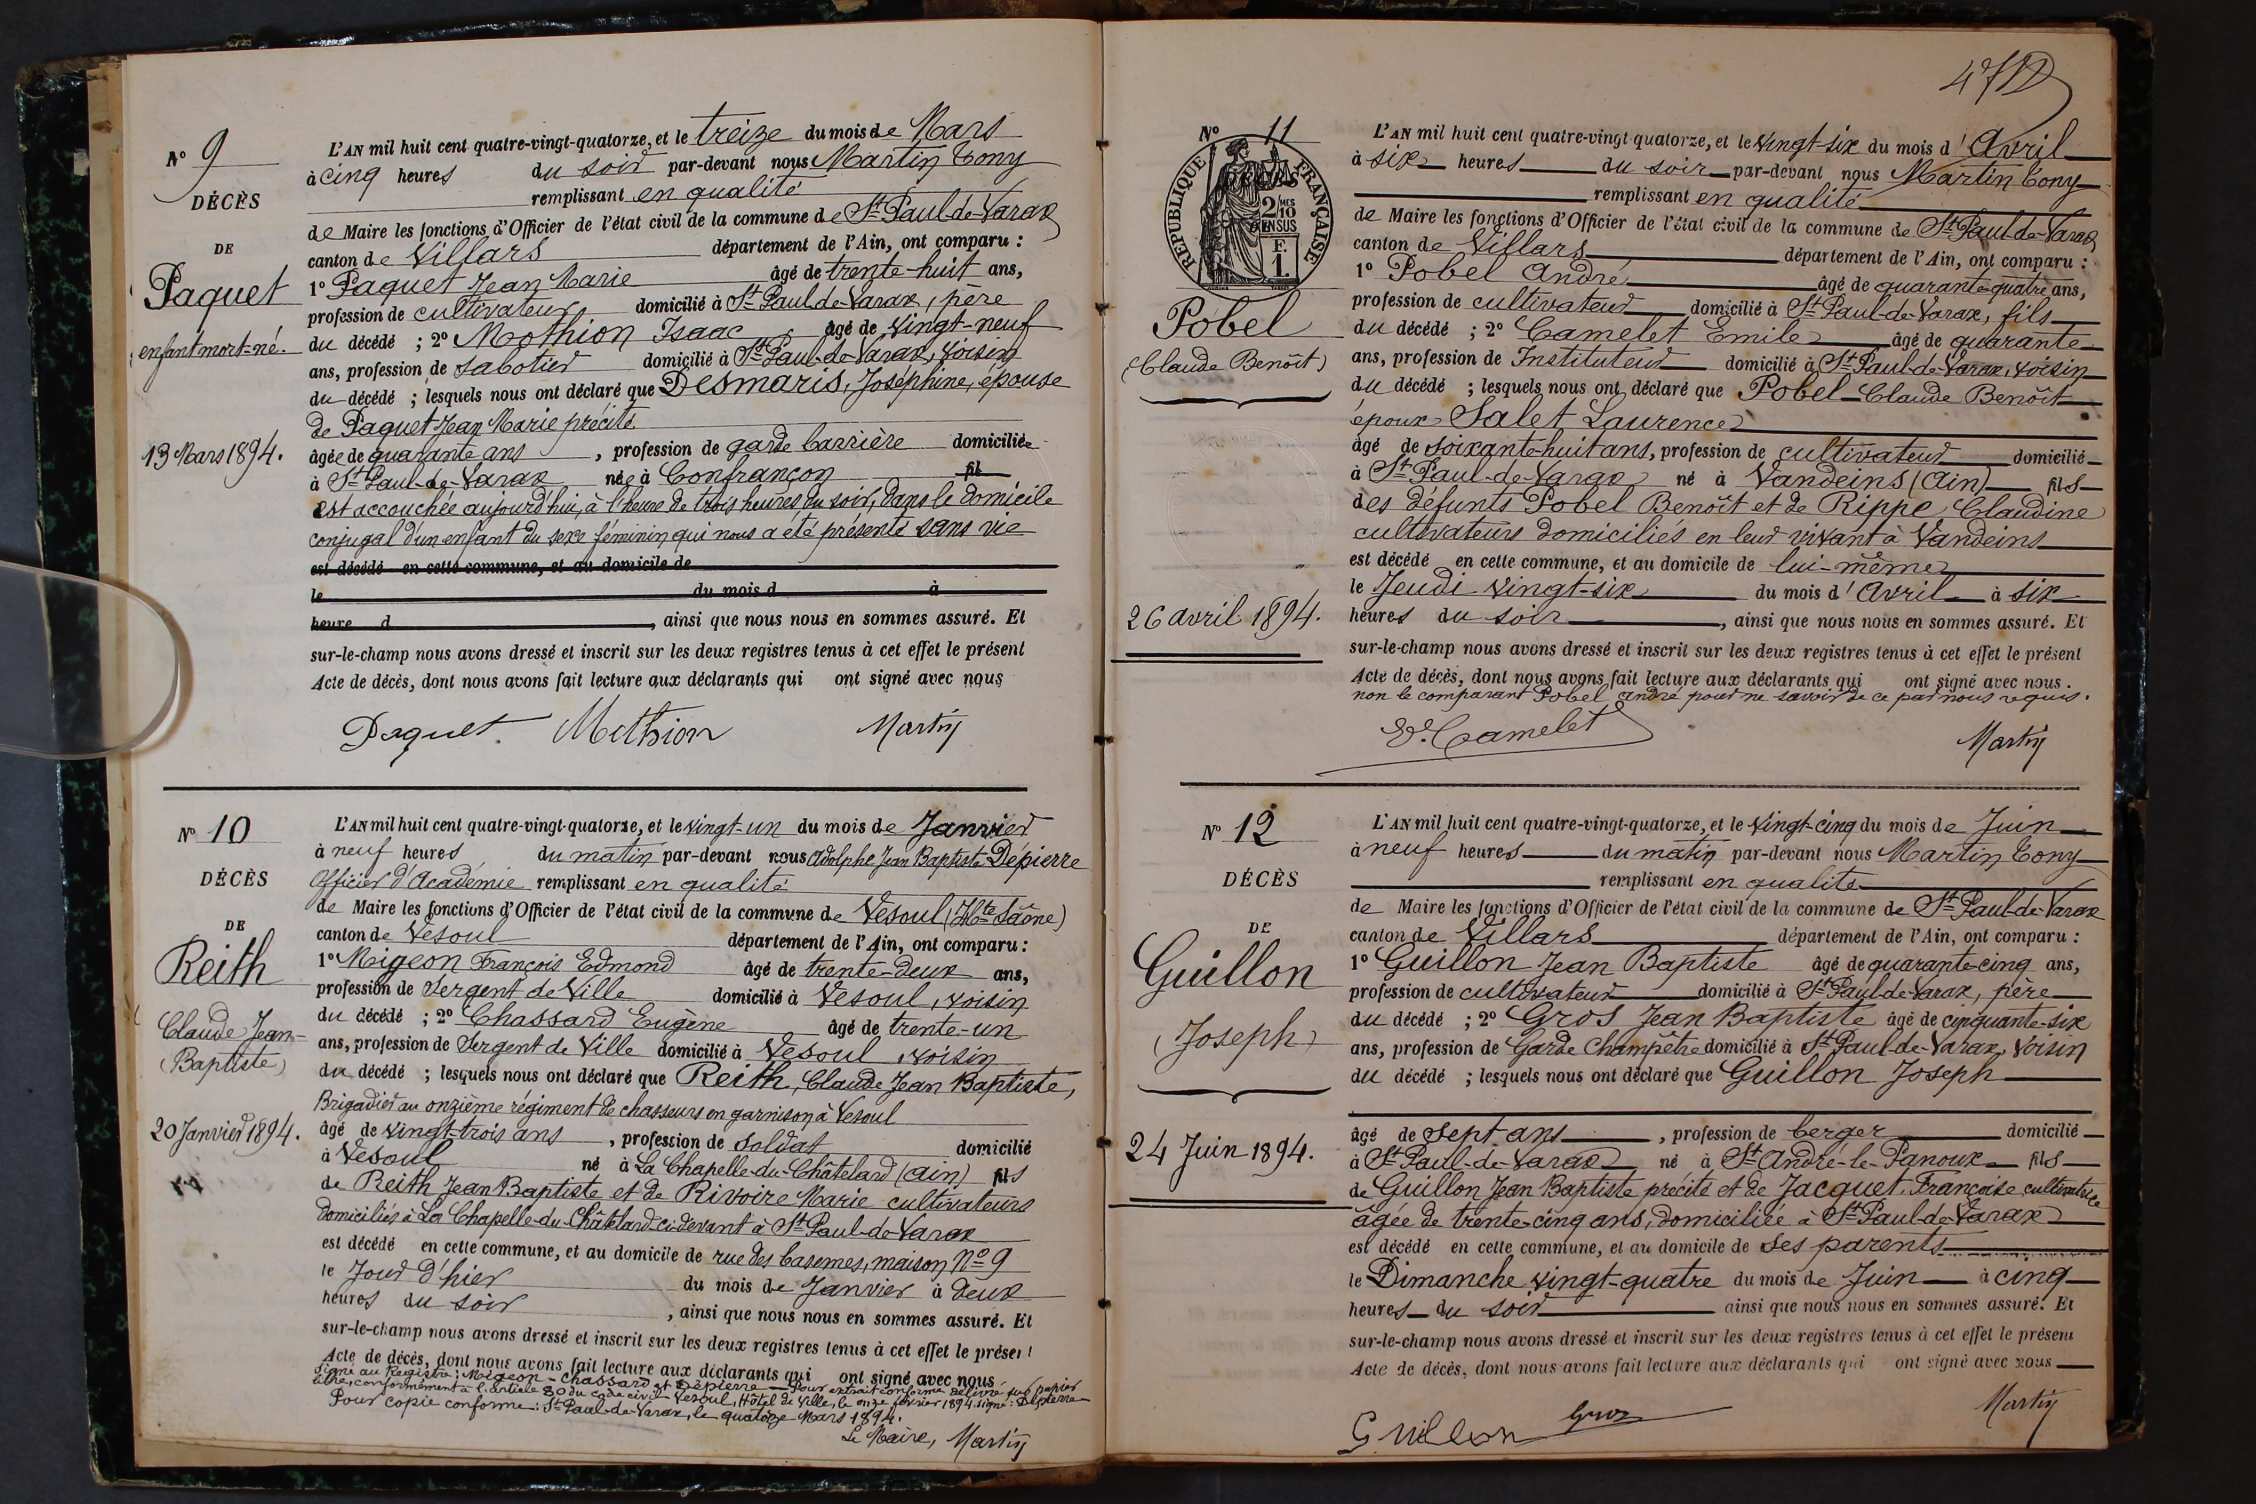 Nº 9
DÉCÈS
DE
Paquet
enfant mort-né.
13 Mars 1894.
L'AN mil huit cent quatre-vingt-quatorze, et le treize du mois de Mars
à cinq heures du soir par-devant nous Martin Tony
remplissant en qualité
de Maire les fonctions d'Officier de l'état civil de la commune de St Paul-de-Varax
canton de Villars département de l'Ain, ont comparu :
1º Paquet Jean Marie âgé de trente-huit ans,
profession de cultivateur domicilié à St Paul-de-Varax, père
du décédé ; 2º Mothion Isaac âgé de vingt-neuf
ans, profession de sabotier domicilié à St Paul-de-Varax, voisin
du décédé ; lesquels nous ont déclaré que Desmaris, Joséphine, épouse
de Paquet Jean Marie précité
âgée de quarante ans, profession de garde barrière domiciliée
à St Paul-de-Varax née à Confrançon fil
est accouchée aujourd'hui, à l'heure de trois heures du soir, dans le domicile
conjugal d'un enfant du sexe féminin qui nous a été présenté sans vie
est décédé en cette commune, et au domicile de
le du mois d à
heure d , ainsi que nous nous en sommes assuré. Et
sur-le-champ nous avons dressé et inscrit sur les deux registres tenus à cet effet le présent
Acte de décès, dont nous avons fait lecture aux déclarants qui ont signé avec nous
Paquet Mothion Martin
Nº 10
DÉCÈS
DE
Reith
Claude Jean-
(Baptiste)
20 Janvier 1894.
L'AN mil huit cent quatre-vingt-quatorze, et le vingt-un du mois de Janvier
à neuf heures du matin par-devant nous Adolphe Jean Baptiste Dépierre
Officier d'Académie remplissant en qualité
de Maire les fonctions d'Officier de l'état civil de la commune de Vesoul (Hte Saône)
canton de Vesoul département de l'Ain, ont comparu :
1º Migeon François Edmond âgé de trente-deux ans,
profession de Sergent de Ville domicilié à Vesoul, voisin
du décédé ; 2º Chassard Eugène âgé de trente-un
ans, profession de Sergent de Ville domicilié à Vesoul, voisin
du décédé ; lesquels nous ont déclaré que Reith, Claude Jean Baptiste,
Brigadier au onzième régiment de chasseurs en garnison à Vesoul
âgé de vingt-trois ans, profession de soldat domicilié
à Vesoul né à La Chapelle-du-Châtelard (Ain) fils
de Reith Jean Baptiste et de Rivoire Marie cultivateurs
domiciliés à La Chapelle-du-Châtelard ci-devant à St Paul-de-Varax
est décédé en cette commune, et au domicile de rue des Casernes, maison Nº 9
le Jour d'hier du mois de Janvier à deux
heures du soir , ainsi que nous nous en sommes assuré. Et
sur-le-champ nous avons dressé et inscrit sur les deux registres tenus à cet effet le présent
Acte de décès, dont nous avons fait lecture aux déclarants qui ont signé avec nous
Signé au Registre : Migeon - Chassard et Dépierre - Pour extrait conforme délivré sur papier
libre, conformément à l'article 80 du code civil Vesoul, Hôtel de Ville, le onze février 1894. signé : Dépierre
Pour copie conforme : St Paul-de-Varax, le quatorze Mars 1894.
Le Maire, Martin
Nº 11
RÉPUBLIQUE FRANÇAISE
2/10 MES
EN SUS
F.
1.
Pobel
(Claude Benoît)
26 avril 1894.
L'AN mil huit cent quatre-vingt quatorze, et le vingt-six du mois d'Avril
à six heures du soir par-devant nous Martin Tony
remplissant en qualité
de Maire les fonctions d'Officier de l'état civil de la commune de St Paul-de-Varax
canton de Villars département de l'Ain, ont comparu :
1º Pobel André âgé de quarante-quatre ans,
profession de cultivateur domicilié à St Paul-de-Varax, fils
du décédé ; 2º Camelet Emile âgé de quarante
ans, profession de Instituteur domicilié à St Paul-de-Varax, voisin
du décédé ; lesquels nous ont déclaré que Pobel Claude Benoît
époux Salet Laurence
âgé de soixante-huit ans, profession de cultivateur domicilié
à St Paul-de-Varax né à Vandeins (Ain) fils
des défunts Pobel Benoît et de Rippe Claudine
cultivateurs domiciliés en leur vivant à Vandeins
est décédé en cette commune, et au domicile de lui-même
le Jeudi vingt-six du mois d'Avril à six
heures du soir , ainsi que nous nous en sommes assuré. Et
sur-le-champ nous avons dressé et inscrit sur les deux registres tenus à cet effet le présent
Acte de décès, dont nous avons fait lecture aux déclarants qui ont signé avec nous.
non le comparant Pobel André pour ne savoir de ce par nous requis.
E. Camelet Martin
Nº 12
DÉCÈS
DE
Guillon
(Joseph)
24 Juin 1894.
L'AN mil huit cent quatre-vingt-quatorze, et le vingt-cinq du mois de Juin
à neuf heures du matin par-devant nous Martin Tony
remplissant en qualité
de Maire les fonctions d'Officier de l'état civil de la commune de St Paul-de-Varax
canton de Villars département de l'Ain, ont comparu :
1º Guillon Jean Baptiste âgé de quarante-cinq ans,
profession de cultivateur domicilié à St Paul-de-Varax, père
du décédé ; 2º Gros Jean Baptiste âgé de cinquante-six
ans, profession de Garde Champêtre domicilié à St Paul-de-Varax, voisin
du décédé ; lesquels nous ont déclaré que Guillon Joseph
âgé de sept ans, profession de berger domicilié
à St Paul-de-Varax né à St André-le-Panoux fils
de Guillon Jean Baptiste précité et de Jacquet Françoise cultivatrice
âgée de trente-cinq ans, domiciliée à St Paul-de-Varax
est décédé en cette commune, et au domicile de ses parents
le Dimanche vingt-quatre du mois de Juin à cinq
heures du soir ainsi que nous nous en sommes assuré. Et
sur-le-champ nous avons dressé et inscrit sur les deux registres tenus à cet effet le présent
Acte de décès, dont nous avons fait lecture aux déclarants qui ont signé avec nous
Guillon Gros Martin